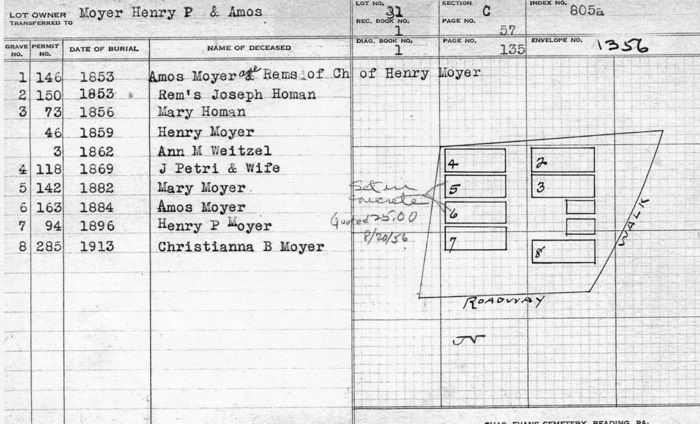 LOT OWNER Moyer Henry P & Amos
TRANSFERRED TO
LOT NO. 31 SECTION C INDEX NO. 805a
REC. BOOK NO. 1 PAGE NO. 57
DIAG. BOOK NO. 1 PAGE NO. 135 ENVELOPE NO. 1356
GRAVE NO. PERMIT NO. DATE OF BURIAL NAME OF DECEASED
1 146 1853 Amos Moyer Rems.of Ch of Henry Moyer
2 150 1853 Rem's Joseph Homan
3 73 1856 Mary Homan
46 1859 Henry Moyer
3 1862 Ann M Weitzel
4 118 1869 J Petri & Wife
5 142 1882 Mary Moyer
6 163 1884 Amos Moyer
7 94 1896 Henry P Moyer
8 285 1913 Christianna B Moyer
Set in
concrete
Quoted 25.00
8/20/56
4 2
5 3
6
7 8
WALK
ROADWAY
CHAS. EVANS CEMETERY, READING, PA.